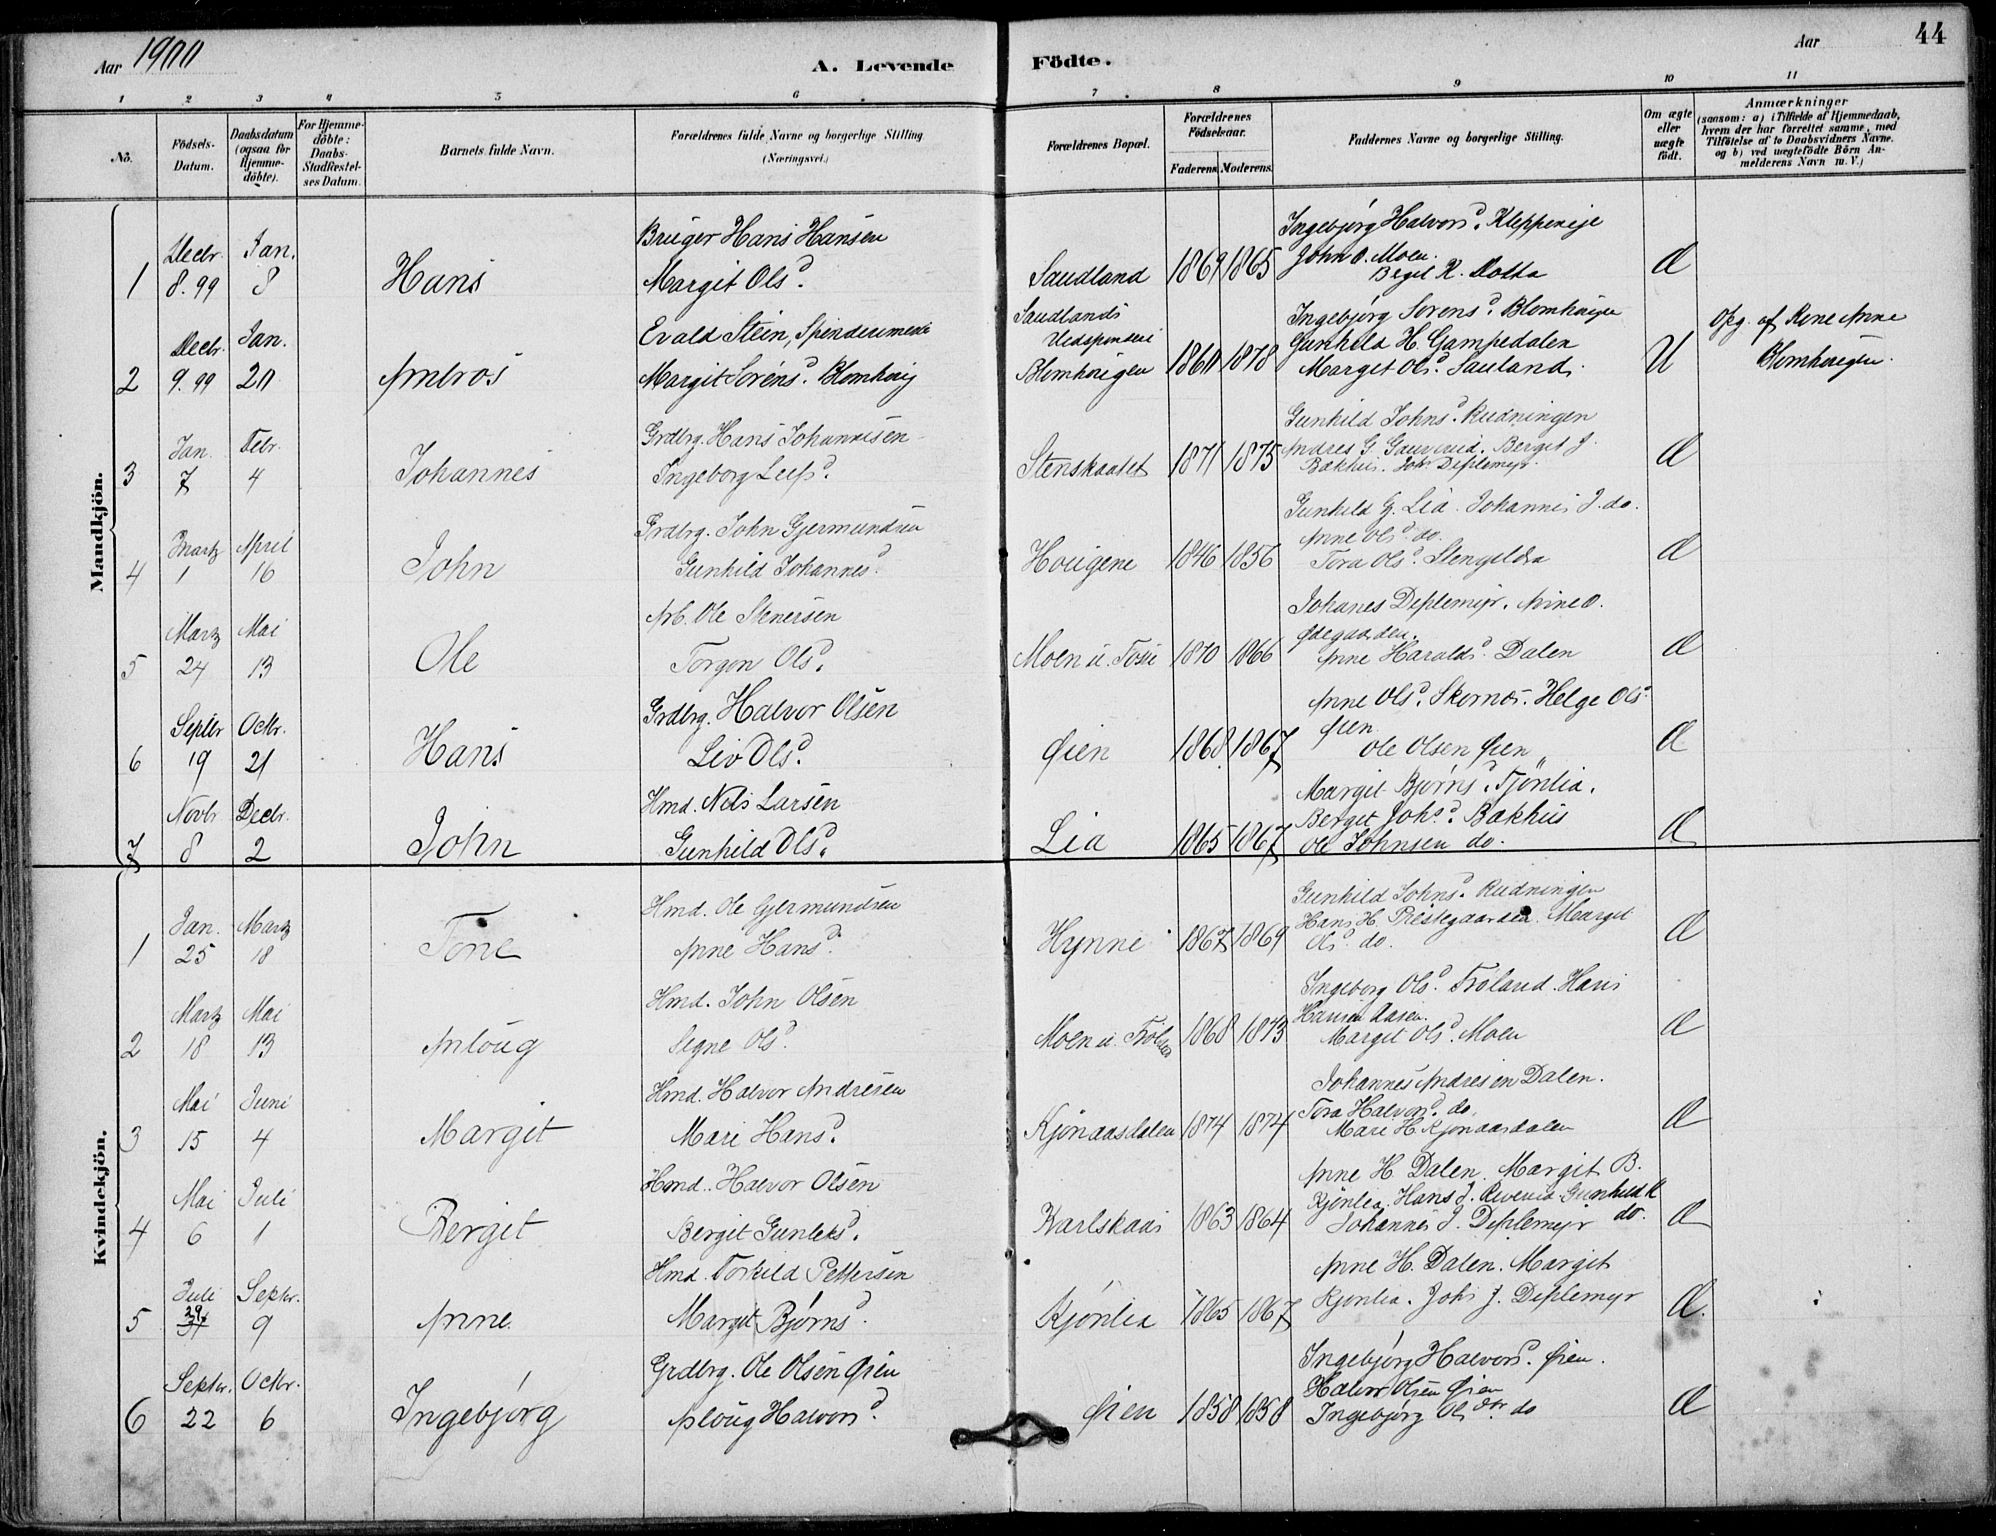 Aar 1900
A. Levende Födte.
Aar
44
1 2 3 4 5 6 7 8 9 10 11
No.
Födsels-Datum.
Daabsdatum (ogsaa for Hjemme-döbte).
For Hjemme-döbte: Daabs-Stadfæstel-ses Datum.
Barnets fulde Navn.
Forældrenes fulde Navne og borgerlige Stilling (Næringsvei.)
Forældrenes Bopæl.
Forældrenes Födselsaar.
Faderens. Moderens.
Faddernes Navne og borgerlige Stilling.
Om ægte eller uægte født.
Anmærkninger
(saasom: a) i Tilfælde af Hjemmedaab, hvem der har forrettet samme, med Tilföielse af to Daabsvidners Navne, og b) ved uægtefødte Börn An-melderens Navn m. V.)
Mandkjön.
1 Decbr. 8. 99 Jan. 8 Hans
Brüger Hans Hansen
Margit Olsd.
Saudland 1869 1865
Ingebjørg Halvorsd. Kleppeneje
John O. Moen.
Birgit K. Dotta
Æ
2 Decbr. 9. 99 Jan. 20 Ambros
Evald Stein,
Margit Sørensd. Blomhoug
Saudlands
Blomhaugen 1860 1878
Ingebjørg Sorensd. Blomhaugen
Gunhild H. Gampedalen
Margit Olsd. Sauland.
U
Opg. af Kone Anne
Blomhaugen.
3 Jan. 7 Febr. 4 Johannes
Grdbrg. Hans Johannesen
Ingeborg Leifsd.
Stenskaatet 1871 1875
Gunhild Johnsd. Rudningen
Andres G. . Berget J.
Bakhus. Joh Deplemyr.
Æ
4 Martz 1 April 16 John
Grdbrg. John Gjermundsen
Gunhild Johannesd.
Hougene 1846 1856
Gunhild G. Lia. Johannes J. do.
Anne Olsd. do.
Tora Olsd.
Æ
5 Martz 24 Mai 13 Ole
Arb. Ole Stenersen
Torgon Olsd.
Moen u. 1870 1866
Johanes Deplemyr. Anne O.
Ødegaarden.
Anne Haraldsd. Dalen
Æ
6 Septbr 19 Octbr. 21 Hans
Grdbrg. Halvor Olsen
Liv Olsd.
Øien 1868 1867
Anne Olsd. Skornes. Helge Ols
Øien
Ole Olsen Øien
Æ
7 Novbr 8 Decbr. 2 John
Hmd. Nils Larsen
Gunhild Olsd.
Lia 1865 1867
Margit Bjørnsd. Tjönlia.
Berget Johsd. Bakhus
Ole Johnsen do.
Æ
Kvindekjön.
1 Jan. 25 Martz 18 Tone
Hmd. Ole Gjermundsen
Anne Hansd.
Hynne 1867 1869
Gunhild Johnsd. Rudningen
Hans H. Prestegaarden. Margit
Olsd. do.
Æ
2 Martz 18 Mai 13 Anloug
Hmd. John Olsen
Segne Olsd.
Moen u. 1868 1873
Ingeborg Olsd. Froland. Hans
Hansen Aasen.
Margit Olsd. Moen
Æ
3 Mai 15 Juni 4 Margit
Hmd. Halvor Andresen
Mari Hansd.
Kjonaasdalen 1874 1874
Johannes Andresen Dalen.
Tora Halvorsd. do.
Mari H. Kjonaasdalen
Æ
4 Mai 6 Juli 1 Berget
Hmd. Halvor Olsen
Bergit Gunleksd.
Karlskaas 1863 1864
Anne H. Dalen. Margit B.
Kjönlia. Hans J. . Gunhild K
Johannes J. Deplemyr do.
Æ
5 Juli 29 Septbr. 9 Anne.
Hmd. Torkild Pettersen
Margit Bjørnsd.
Kjönlia 1865 1867
Anne H. Dalen. Margit
Kjönlia. Johs J. Deplemyr
Æ.
6 Septbr. 22 Octbr. 6 Ingebjørg
Grdbrg. Ole Olsen Øien
Aaloug Halvorsd.
Øien 1858 1858
Ingebjørg Halvorsd. Øien.
Halvor Olsen Øien
Ingebjørg Olsdtr. do
Æ